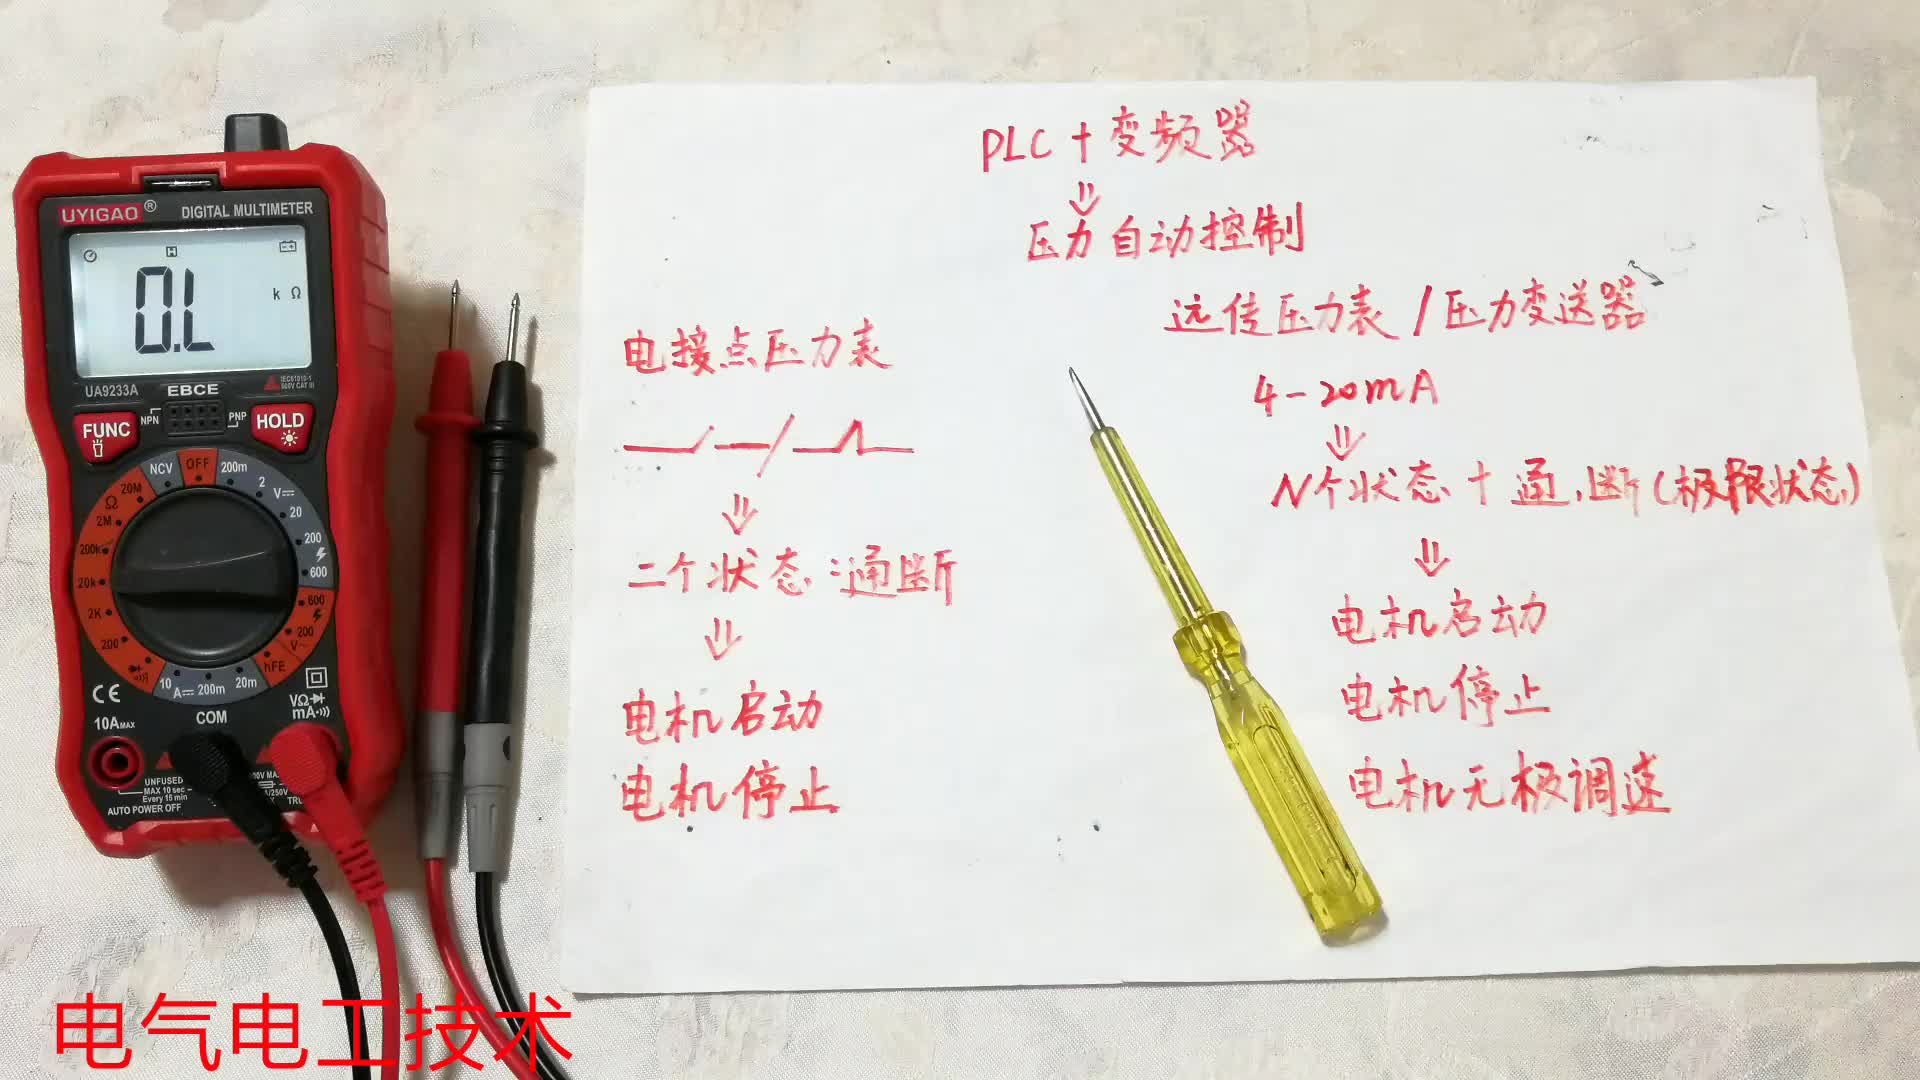 PLC+变频器
压力自动控制
电接点压力表
二个状态:通断
电机启动
电机停止
远传压力表/压力变送器
4-20mA
N个状态+通、断(极限状态)
电机启动
电机停止
电机无极调速
UYIGAO® DIGITAL MULTIMETER
0.L
k Ω
UA9233A
EBCE
IEC61010-1
600V CAT III
FUNC
NPN
PNP
HOLD
NCV
OFF
200m
2
V
20
200
600
600
200
V
hFE
20m
200m
A
10
200
2K
20k
200k
2M
20M
Ω
CE
10A MAX
COM
VΩ
mA
UNFUSED
MAX 10 sec
Every 15 min
AUTO POWER OFF
电气电工技术